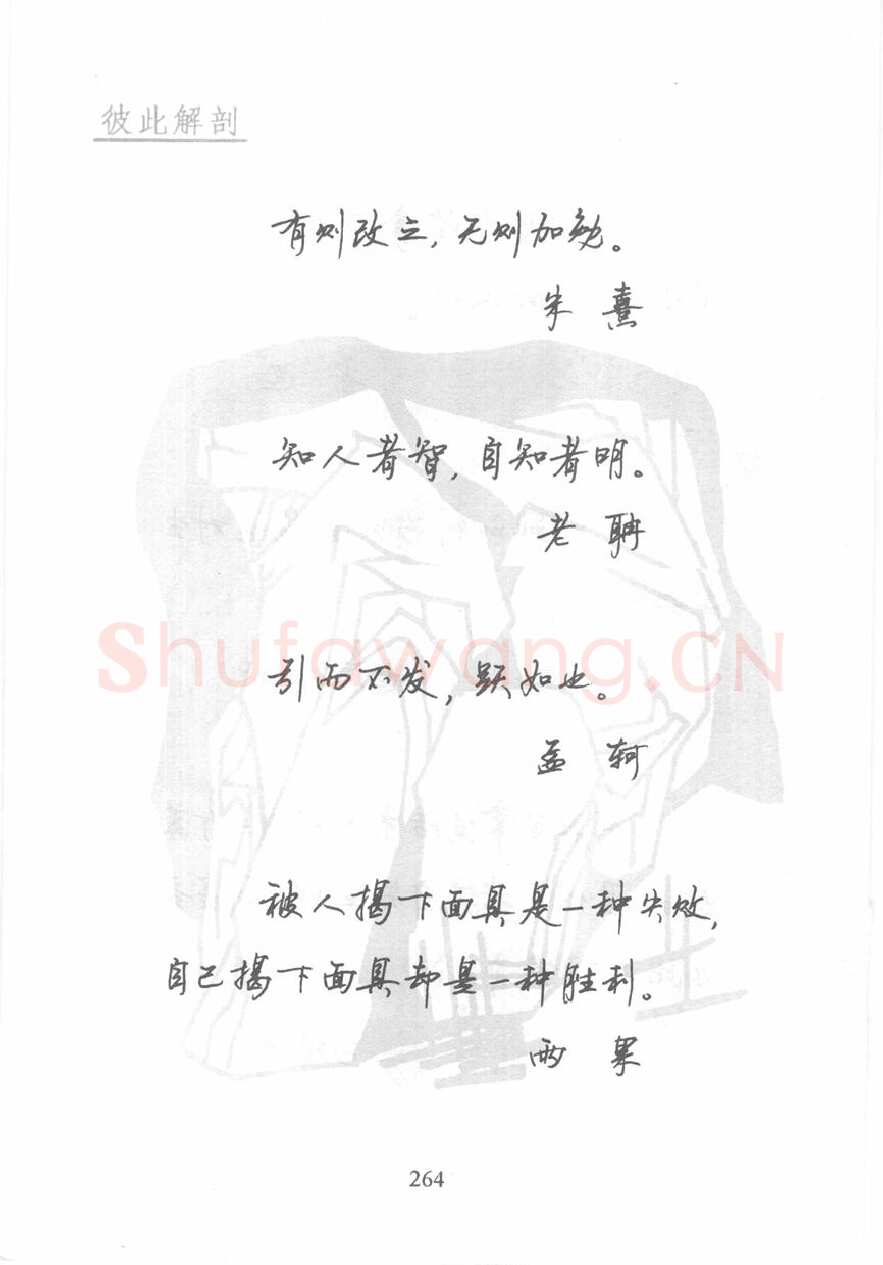 彼此解剖
有则改之,无则加勉。
朱 熹
知人者智,自知者明。
老 聃
Shufawang.CN
引而不发,跃如也。
孟 轲
被人揭下面具是一种失败,
自己揭下面具却是一种胜利。
雨 果
264